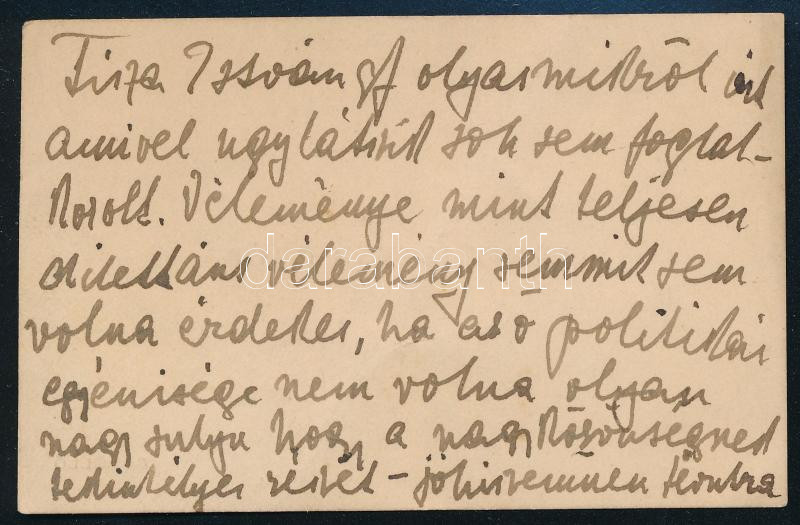 Tisza István gf olyasmikről írt
amivel ugylátszik soh sem foglal-
kozott. Véleménye mint teljesen
dilettáns vélemény semmit sem
volna érdekes, ha az ő politikai
egyénisége nem volna olyan
nagy sulyu hogy a nagyközönségnek
tekintélyes részét - jóhiszemüen
darabanth